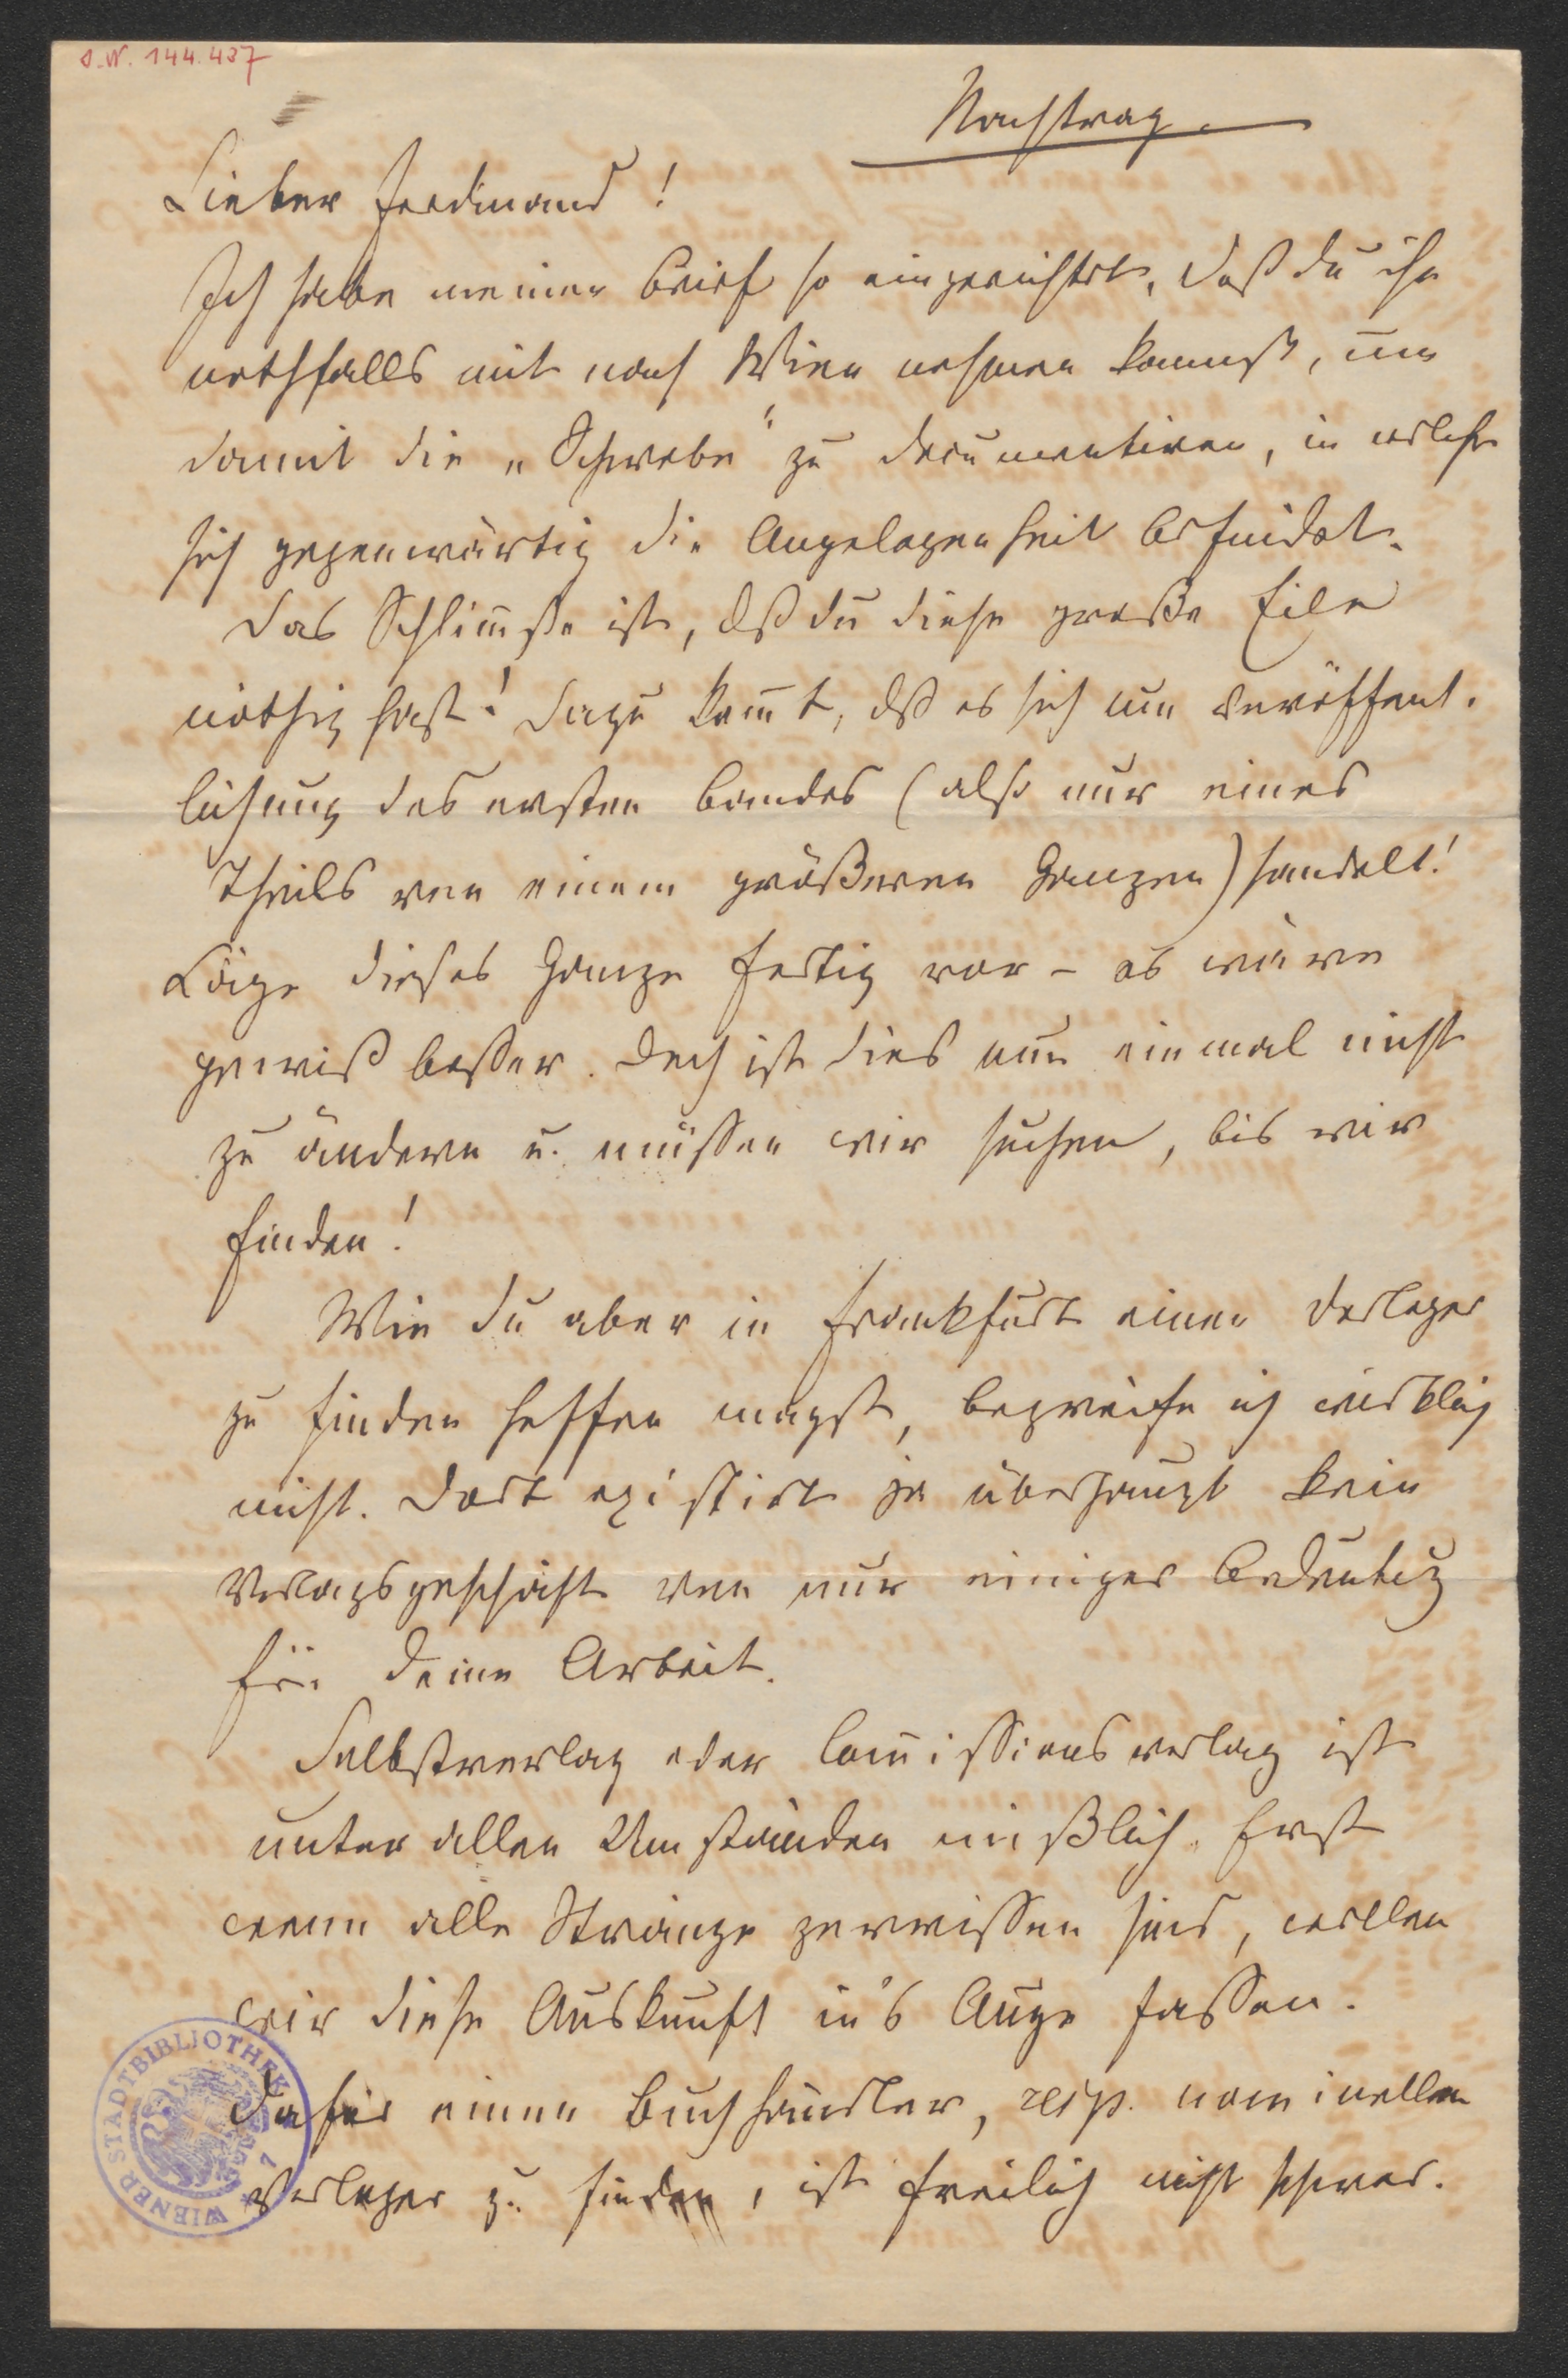 I.N. 144.437
Nachtrag.
Lieber Ferdinand!
Ich habe meinen Brief so eingerichtet, daß du ihn
nothfalls mit nach Wien nehmen kannst, um
damit die „Schwebe" zu documentiren, in welcher
sich gegenwärtig die Angelegenheit befindet.
Das Schlim̅ste ist, dß du diese große Eile
nöthig hast! Dazu kom̅t, dß es sich um Veröffent-
lichung des ersten Bandes (also nur eines
Theils von einem größeren Ganzen) handelt!
Läge dieses Ganze fertig vor – es wäre
gewiß besser. Doch ist dies nun einmal nicht
zu ändern u. müssen wir suchen, bis wir
finden!
Wie du aber in Frankfurt einen Verleger
zu finden hoffen magst, begreife ich wirklich
nicht. Dort existirt ja überhaupt kein
Verlagsgeschäft von nur einiger Bedeutung
für deine Arbeit.
Selbstverlag oder Com̅issionsverlag ist
unter allen Umständen mißlich. Erst
wenn alle Stränge zerrissen sind, wollen
wir diese Auskunft in's Auge fassen.
Dafür einen Buchhändler, resp. nominellen
Verleger zu finden, ist freilich nicht schwer.
WIENER STADTBIBLIOTHEK